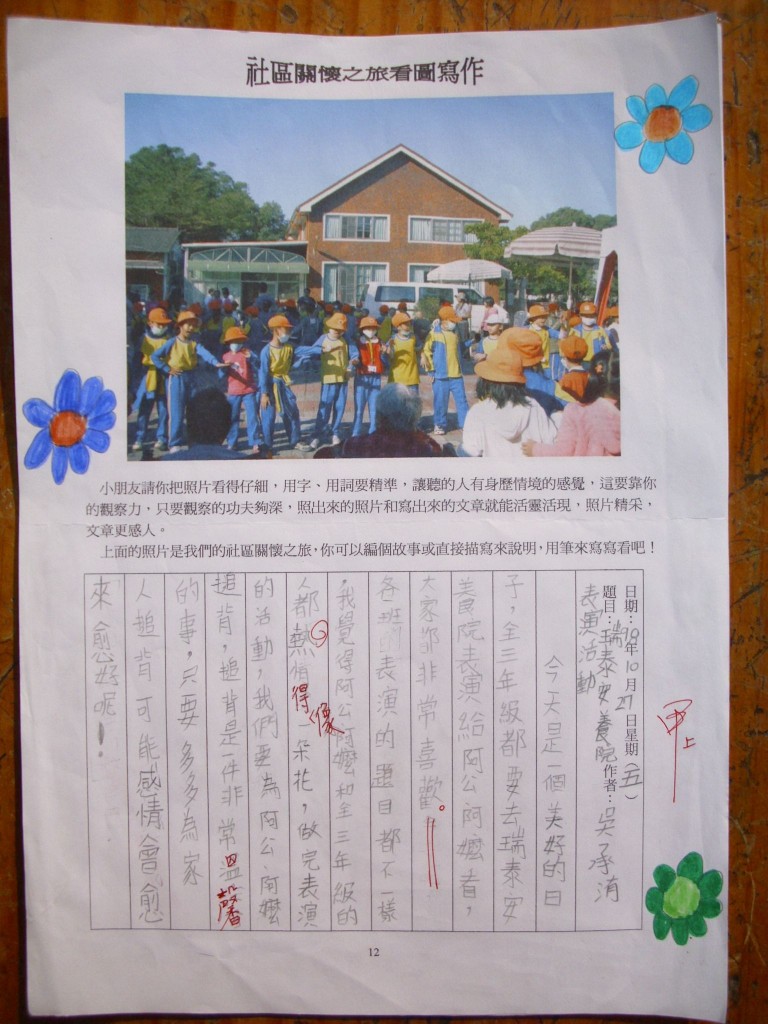 社區關懷之旅看圖寫作
小朋友請你把照片看得仔細，用字、用詞要精準，讓聽的人有身歷情境的感覺，這要靠你
的觀察力，只要觀察的功夫夠深，照出來的照片和寫出來的文章就能活靈活現，照片精采，
文章更感人。
上面的照片是我們的社區關懷之旅，你可以編個故事或直接描寫來說明，用筆來寫寫看吧！
甲上
日期：98年10月27日星期（五）
題目：瑞泰安養院表演活動 作者：吳承洧
今天是一個美好的日
子，全三年級都要去瑞泰安
養院表演給阿公阿嬤看，
大家都非常喜歡。
各班表演的題目都不一樣
，我覺得阿公阿嬤和全三年級的
人都熱情得像一朵花，做完表演
的活動，我們要為阿公、阿嬤
搥背，搥背是一件非常溫馨
的事，只要多多為家
人搥背可能感情會愈
來愈好呢！
12